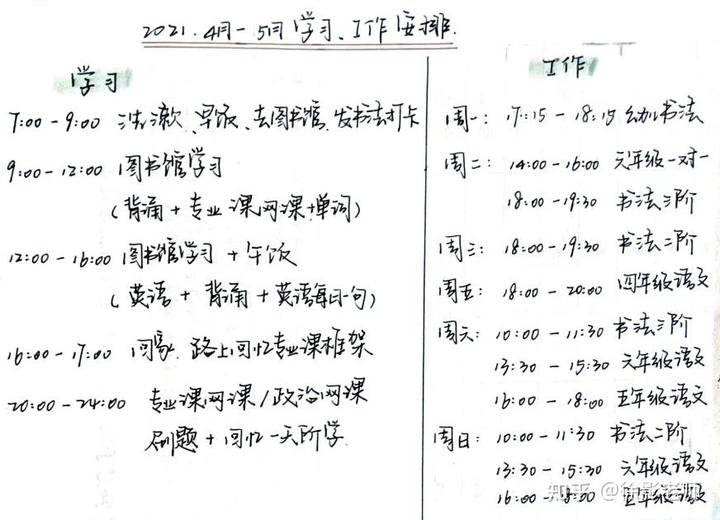 2021.4月-5月学习、工作安排.
学习
7:00-9:00 洗漱、早饭、去图书馆、发书法打卡
9:00-12:00 图书馆学习
(背诵+专业课网课+单词)
12:00-16:00 图书馆学习+午饭
(英语+背诵+英语每日一句)
16:00-17:00 回家.路上回忆专业课框架
20:00-24:00 专业课网课/政治网课
刷题+回忆一天所学.
工作
周一: 17:15-18:15 幼儿书法
周二: 14:00-16:00 六年级一对一
18:00-19:30 书法三阶
周三: 18:00-19:30 书法二阶
周五: 18:00-20:00 四年级语文
周六: 10:00-11:30 书法三阶
13:30-15:30 六年级语文
16:00-18:00 五年级语文
周日: 10:00-11:30 书法二阶
13:30-15:30 六年级语文
16:00-18:00 五年级语文
知乎 @徐影老师